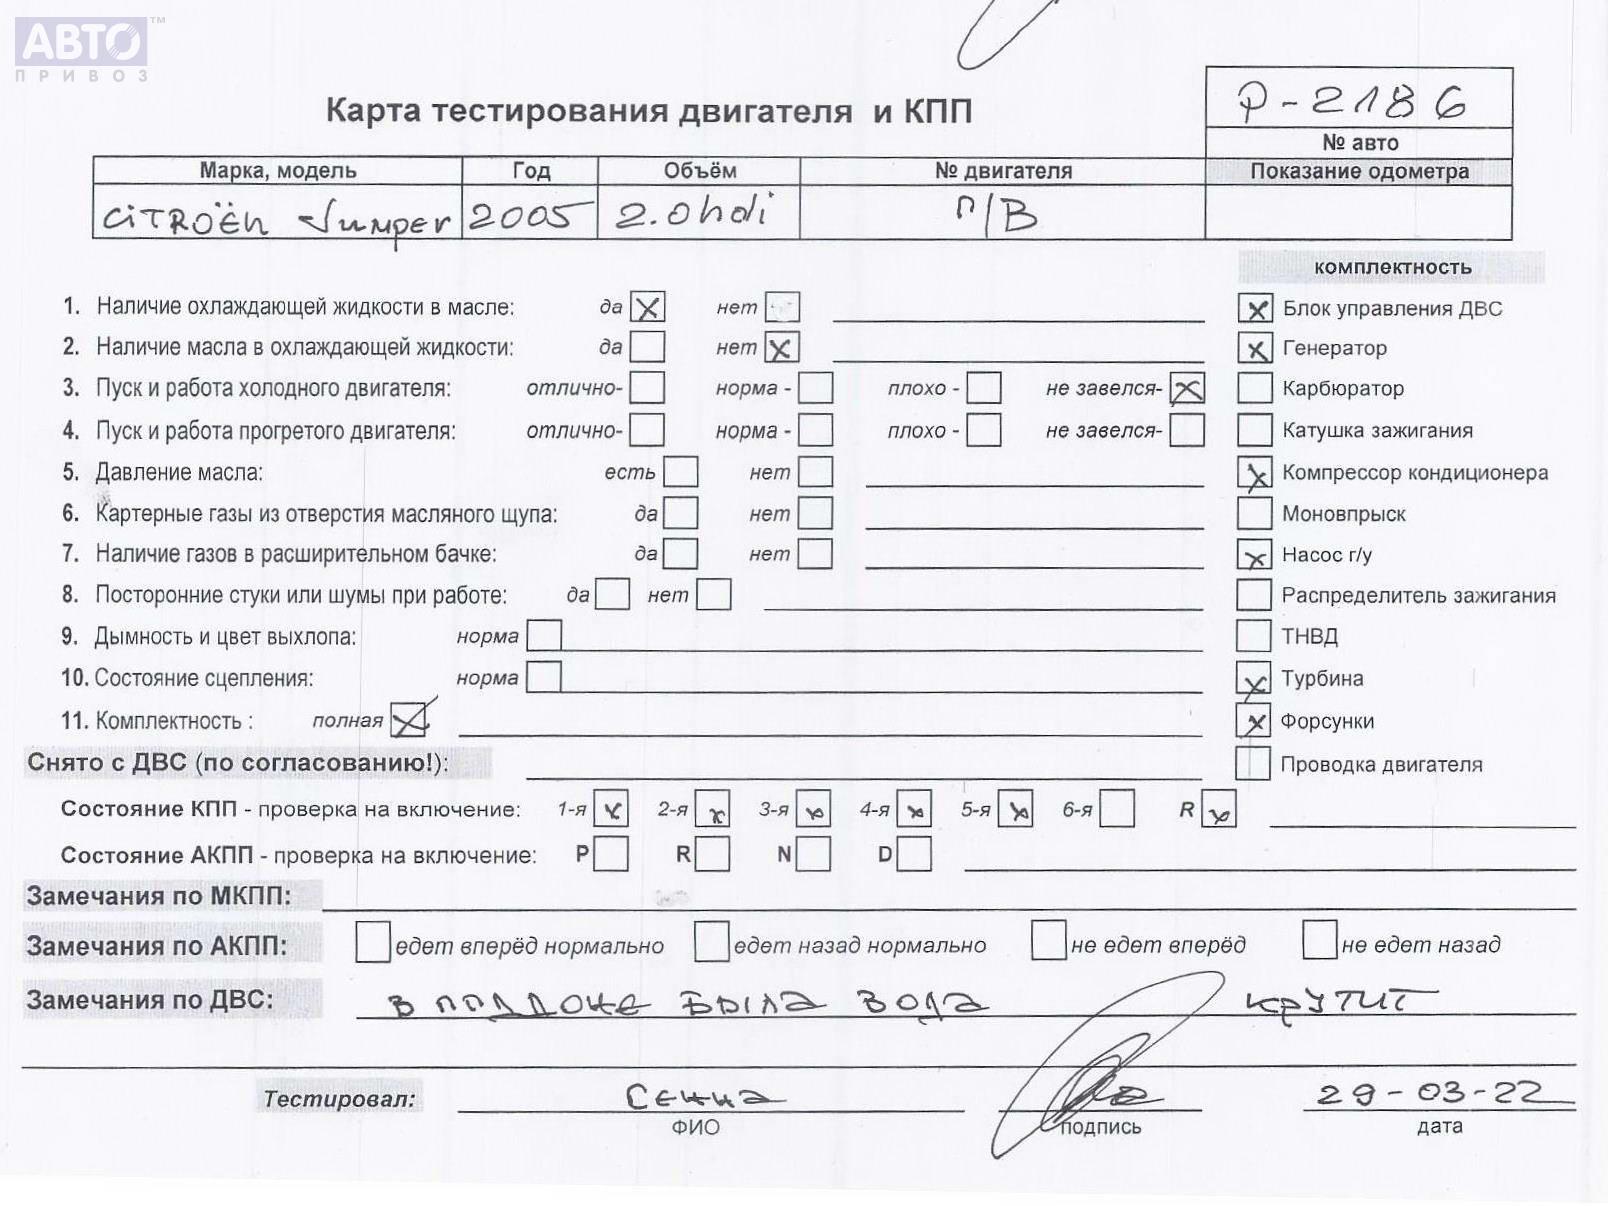 АВТО™
ПРИВОЗ
P-2186
Карта тестирования двигателя и КПП
№ авто
Марка, модель Год Объём № двигателя Показание одометра
CiTROËn Jumper 2005 2.0hdi П/В
комплектность
1. Наличие охлаждающей жидкости в масле: да X нет Х Блок управления ДВС
2. Наличие масла в охлаждающей жидкости: да нет X X Генератор
3. Пуск и работа холодного двигателя: отлично- норма - плохо - не завелся- X Карбюратор
4. Пуск и работа прогретого двигателя: отлично- норма - плохо - не завелся- Катушка зажигания
5. Давление масла: есть нет X Компрессор кондиционера
6. Картерные газы из отверстия масляного щупа: да нет Моновпрыск
7. Наличие газов в расширительном бачке: да нет X Насос г/у
8. Посторонние стуки или шумы при работе: да нет Распределитель зажигания
9. Дымность и цвет выхлопа: норма ТНВД
10. Состояние сцепления: норма X Турбина
11. Комплектность : полная X X Форсунки
Снято с ДВС (по согласованию!): Проводка двигателя
Состояние КПП - проверка на включение: 1-я X 2-я X 3-я X 4-я X 5-я X 6-я R X
Состояние АКПП - проверка на включение: P R N D
Замечания по МКПП:
Замечания по АКПП: едет вперёд нормально едет назад нормально не едет вперёд не едет назад
Замечания по ДВС: В поддоне была вода крутит
Тестировал: Сенна 29-03-22
ФИО подпись дата